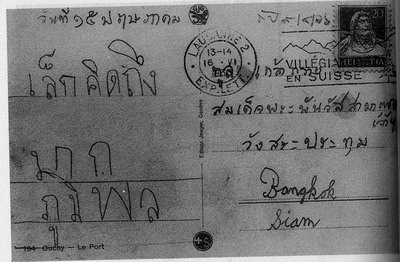 วันที่ ๑๕ พฤษภาคม
เล็กคิดถึง
มาก
ภูมิพล
194 Ouchy — Le Port
Jaeger, Genève
LAUSANNE 2
13-14
EXP. LETT.
VILLÉGIA
EN SUISSE
20
HELVETIA
สมเด็จพระพันวัสสา
วังสระประทุม
Bangkok
Siam